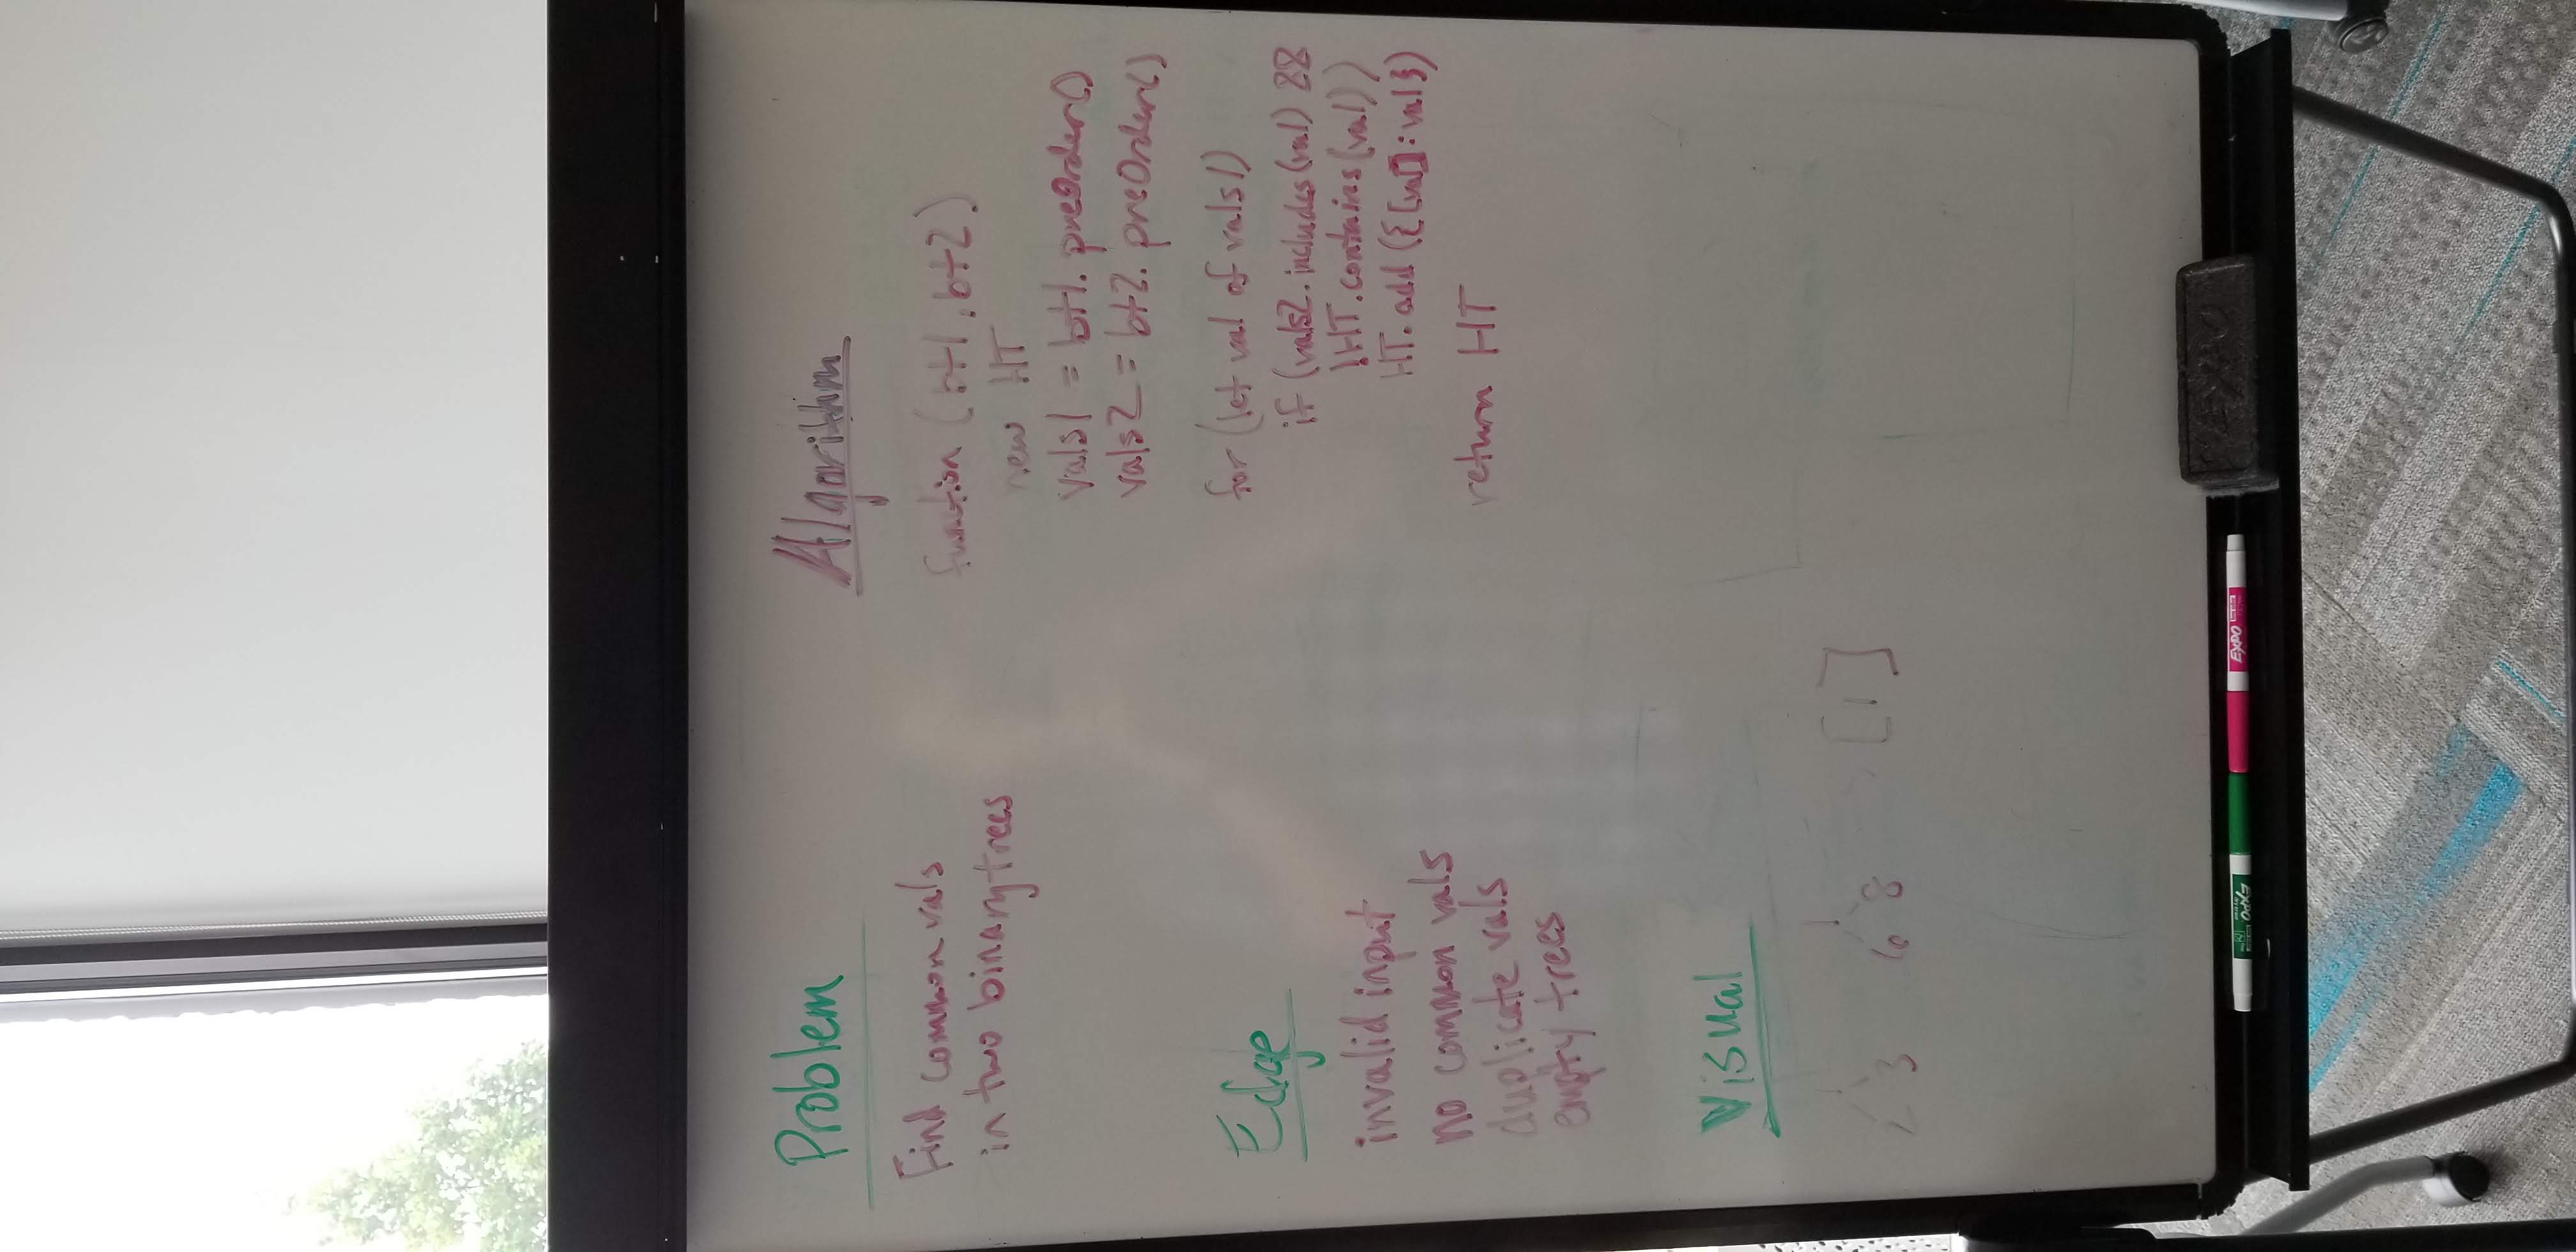 Problem
Find common vals
in two binary trees
Edge
invalid input
no common vals
duplicate vals
empty trees
Visual
1 1
2 3 6 8 [1]
Algorithm
function (bt1, bt2)
new HT
vals1 = bt1. preOrder()
vals2 = bt2. preOrder()
for (let val of vals1)
if (vals2.includes(val) &&
!HT.contains(val))
HT.add({[val]:val})
return HT
EXPO EXPO
EXPO